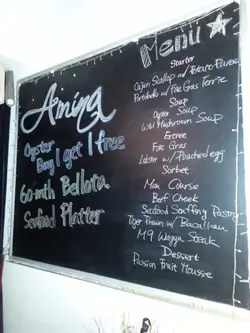 Amina
Oyster
Buy 1 get 1 free
60-mth Bellota
Seafood Platter
Menu
Starter
Cajun Scallop w/ Potato Puree
Portobello w/ Foie Gras Terrie
Soup
Oyster Soup
Wild Mushroom Soup
Entree
Foie Gras
Lobster w/ Poached egg
Sorbet
Main Course
Beef Cheek
Seafood Staffing Pasta
Tiger Prawn w/ Bacalhau
M9 Wagyu Steak
Dessert
Passion Fruit Mousse